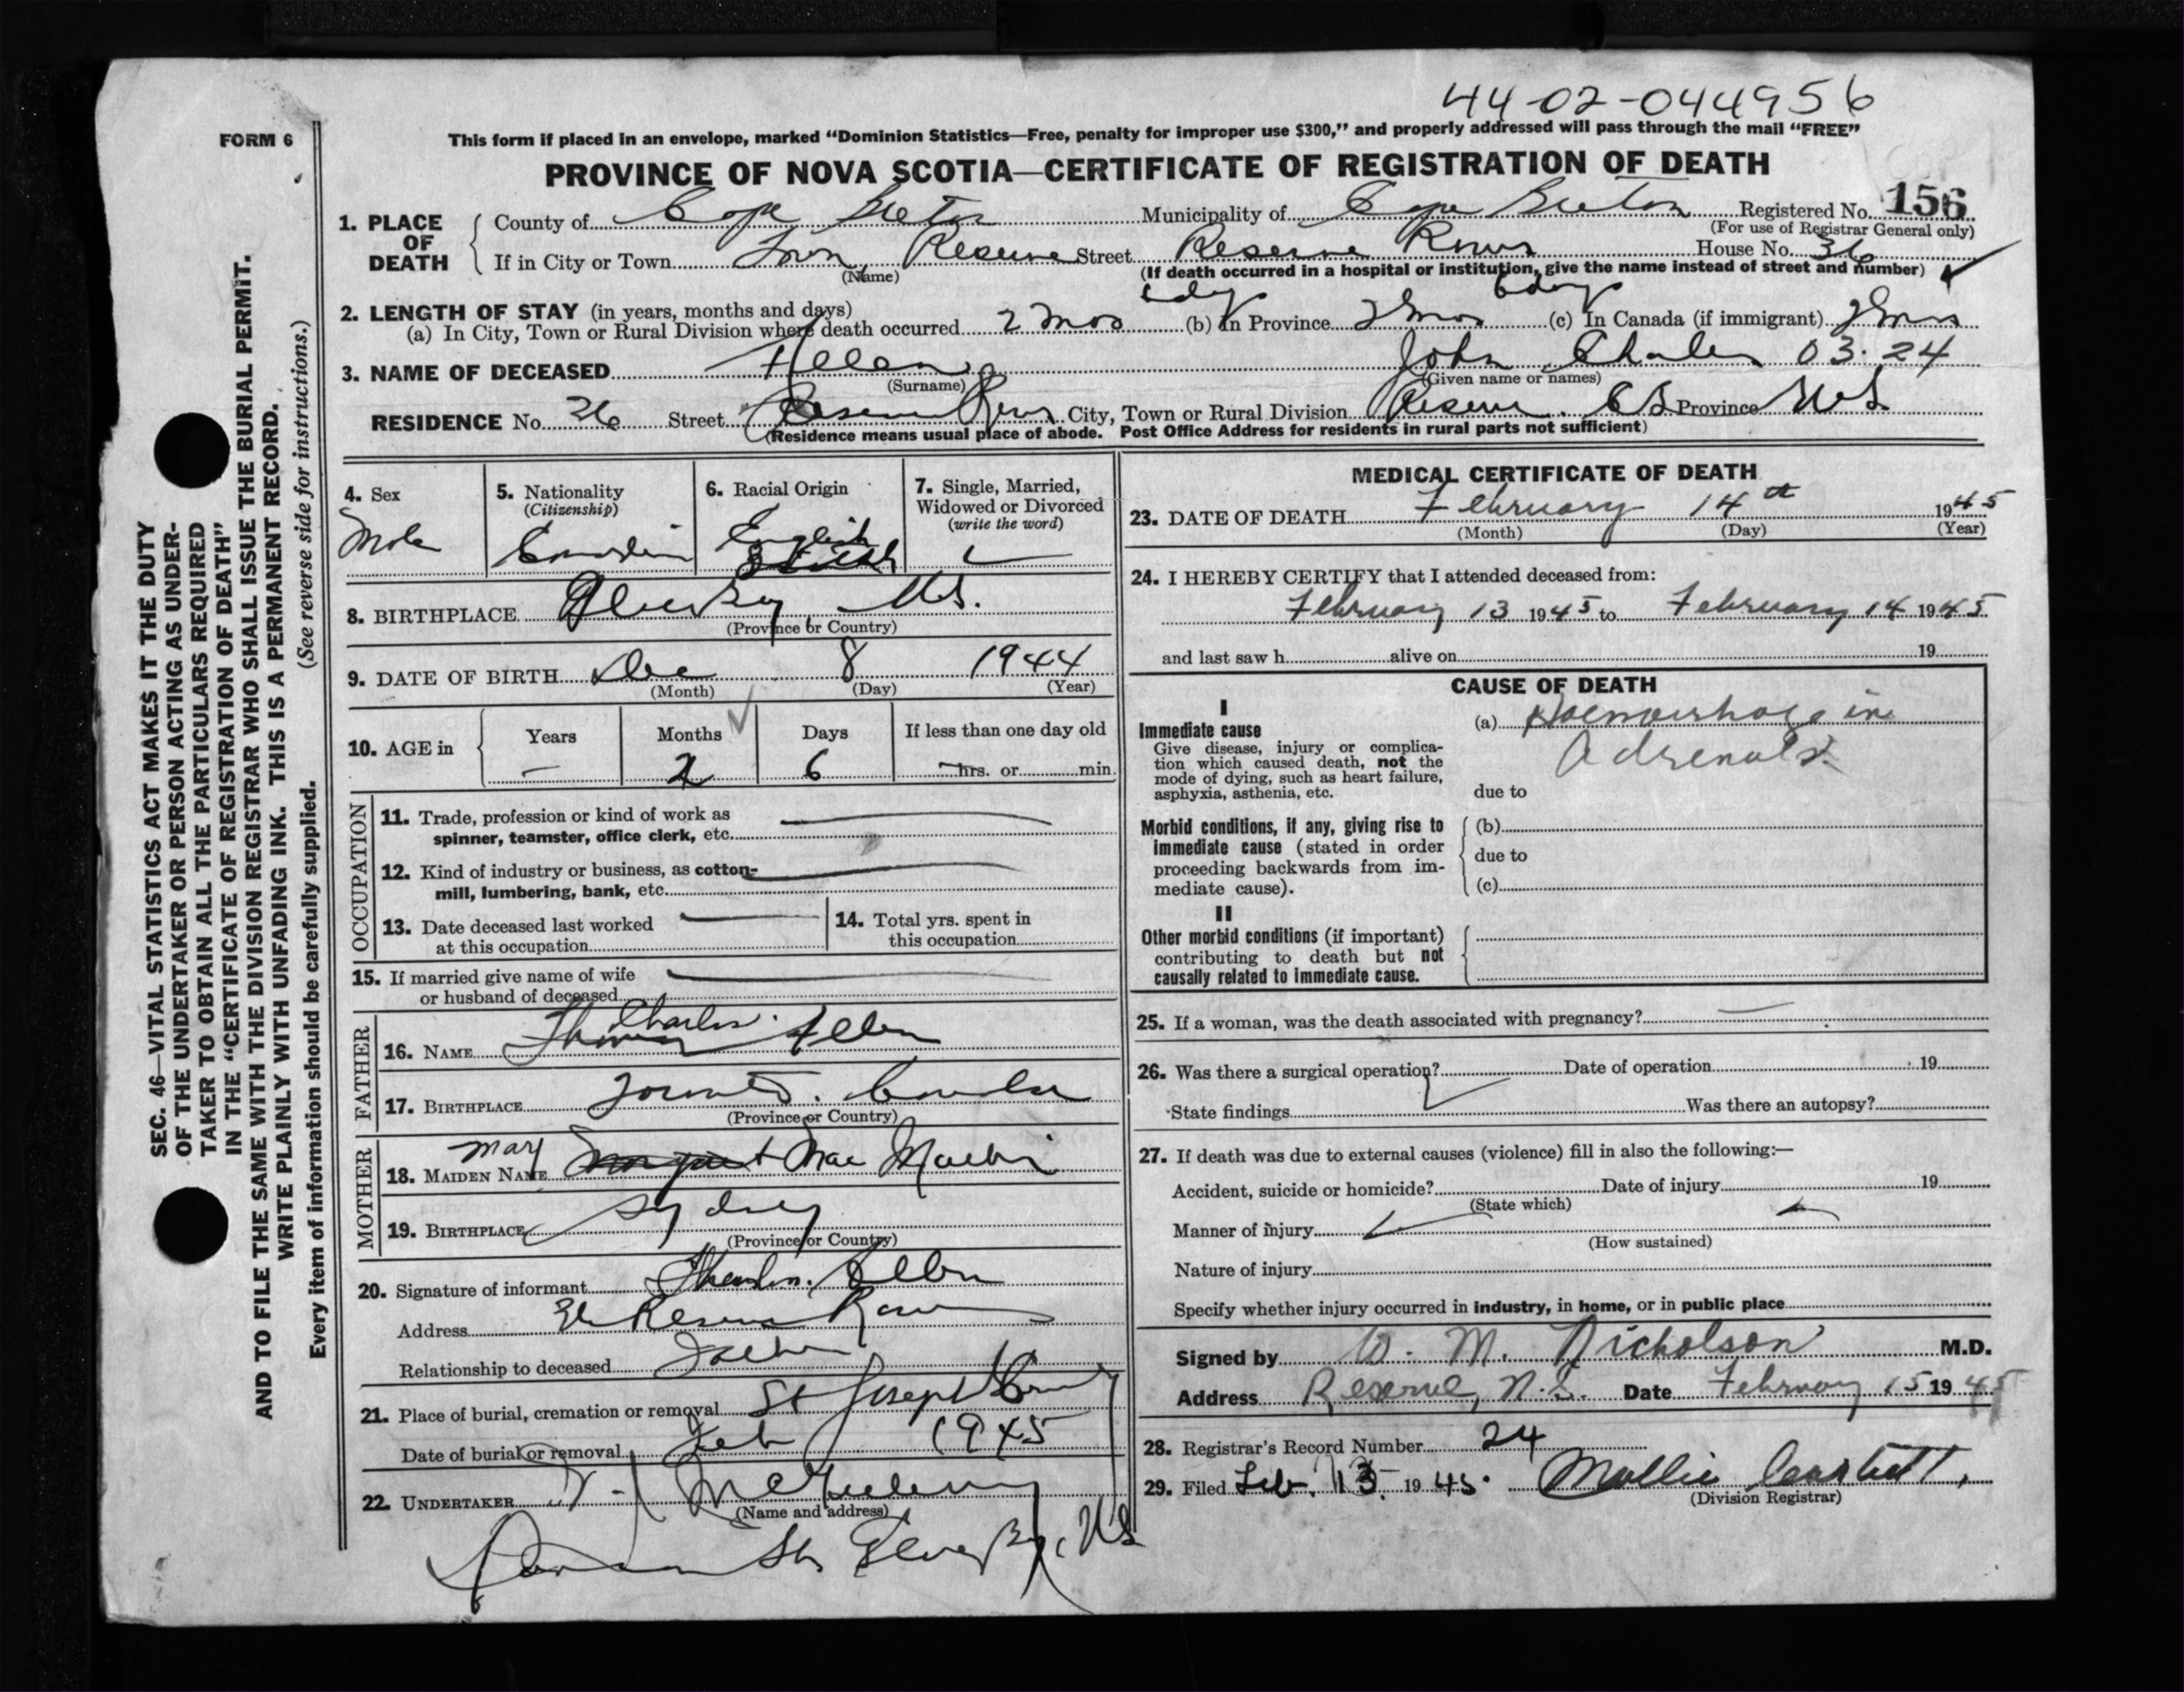 44-02-044956
FORM 6
This form if placed in an envelope, marked “Dominion Statistics—Free, penalty for improper use $300,” and properly addressed will pass through the mail “FREE”
PROVINCE OF NOVA SCOTIA—CERTIFICATE OF REGISTRATION OF DEATH
1. PLACE OF DEATH County of Cape Breton Municipality of Cape Breton Registered No. 156
(For use of Registrar General only)
If in City or Town Town Reserve Street Reserve Rows House No. 36
(Name) (If death occurred in a hospital or institution, give the name instead of street and number)
2. LENGTH OF STAY (in years, months and days) 6 days 6 days
(a) In City, Town or Rural Division where death occurred 2 mos (b) In Province 2 mos (c) In Canada (if immigrant) 2 mos
3. NAME OF DECEASED Allen John Charles 03.24
(Surname) (Given name or names)
RESIDENCE No. 36 Street Reserve Rows City, Town or Rural Division Reserve. CB Province N.S
(Residence means usual place of abode. Post Office Address for residents in rural parts not sufficient)
4. Sex
Male
5. Nationality
(Citizenship)
Canadian
6. Racial Origin
English
7. Single, Married, Widowed or Divorced
(write the word)
8. BIRTHPLACE Glace Bay N.S.
(Province or Country)
9. DATE OF BIRTH Dec 8 1944
(Month) (Day) (Year)
10. AGE in Years Months Days If less than one day old
— 2 6 hrs. or min.
OCCUPATION
11. Trade, profession or kind of work as
spinner, teamster, office clerk, etc.
12. Kind of industry or business, as cotton-
mill, lumbering, bank, etc.
13. Date deceased last worked
at this occupation
14. Total yrs. spent in
this occupation
15. If married give name of wife
or husband of deceased
FATHER
Charles
16. NAME Thomas Allen
17. BIRTHPLACE Toronto. Canada
(Province or Country)
MOTHER
Mary
18. MAIDEN NAME Margaret Mae
19. BIRTHPLACE Sydney
(Province or Country)
20. Signature of informant Charles. Allen
Address 36 Reserve Rows
Relationship to deceased Father
21. Place of burial, cremation or removal St Joseph
Date of burial or removal Feb 1945
22. UNDERTAKER
(Name and address)
Glace Bay, N.S
MEDICAL CERTIFICATE OF DEATH
23. DATE OF DEATH February 14th 1945
(Month) (Day) (Year)
24. I HEREBY CERTIFY that I attended deceased from:
February 13 1945 to February 14 1945
and last saw h alive on 19
CAUSE OF DEATH
I
Immediate cause
Give disease, injury or complica-
tion which caused death, not the
mode of dying, such as heart failure,
asphyxia, asthenia, etc.
(a) Haemorrhage in
Adrenals.
due to
Morbid conditions, if any, giving rise to
immediate cause (stated in order
proceeding backwards from im-
mediate cause).
(b)
due to
(c)
II
Other morbid conditions (if important)
contributing to death but not
causally related to immediate cause.
25. If a woman, was the death associated with pregnancy?
26. Was there a surgical operation? Date of operation 19
State findings Was there an autopsy?
27. If death was due to external causes (violence) fill in also the following:—
Accident, suicide or homicide? Date of injury 19
(State which)
Manner of injury
(How sustained)
Nature of injury
Specify whether injury occurred in industry, in home, or in public place
Signed by D. M. Nicholson M.D.
Address Reserve, N.S. Date February 15 1945
28. Registrar's Record Number 24
29. Filed Feb. 1945. Mollie
(Division Registrar)
SEC. 46—VITAL STATISTICS ACT MAKES IT THE DUTY
OF THE UNDERTAKER OR PERSON ACTING AS UNDER-
TAKER TO OBTAIN ALL THE PARTICULARS REQUIRED
IN THE “CERTIFICATE OF REGISTRATION OF DEATH”
AND TO FILE THE SAME WITH THE DIVISION REGISTRAR WHO SHALL ISSUE THE BURIAL PERMIT.
WRITE PLAINLY WITH UNFADING INK. THIS IS A PERMANENT RECORD.
Every item of information should be carefully supplied. (See reverse side for instructions.)